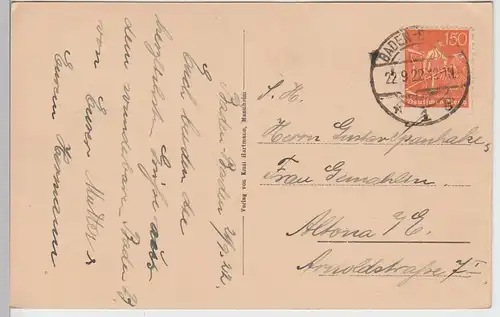 Baden-Baden 22/9.22.
Euch beiden die
herzlichste Grüße aus
dem wunderbare Baden B.
von Eurer Mutter &
Eurem Hermann.
Verlag von Emil Hartmann, Mannheim
BADEN-
22.9.22
150
Deutsches Reich
S. H.
Herrn Gustav Spanhake
Frau Gemahlin
Altona a/E.
Arnoldstraße 7 I